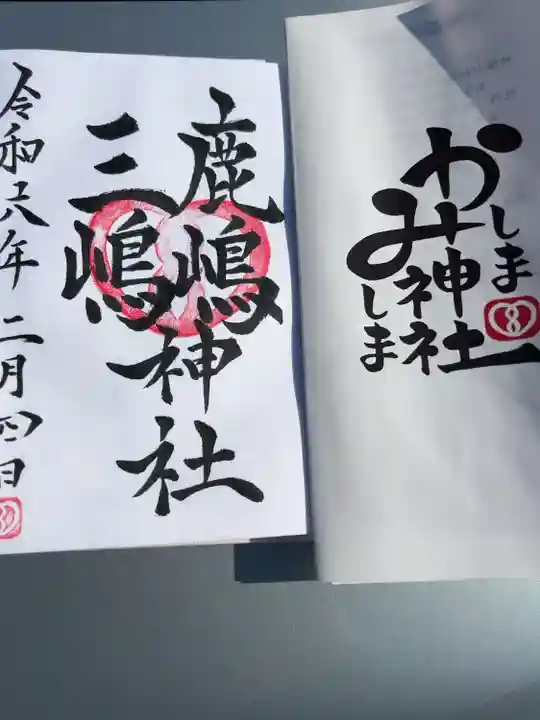 鹿嶋
三嶋
神社
令和六年二月四日
かしま
みしま
神社
神社